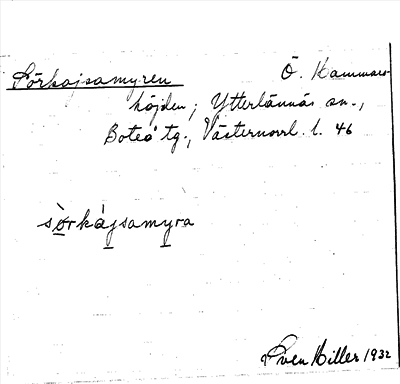 Sörkajsamyren Ö. Kammars-
höjden; Ytterlännäs sn.,
Boteå tg., Västernorrl. l. 46
sò̲rkáj̲samy̲ra
Sven Hiller 1932